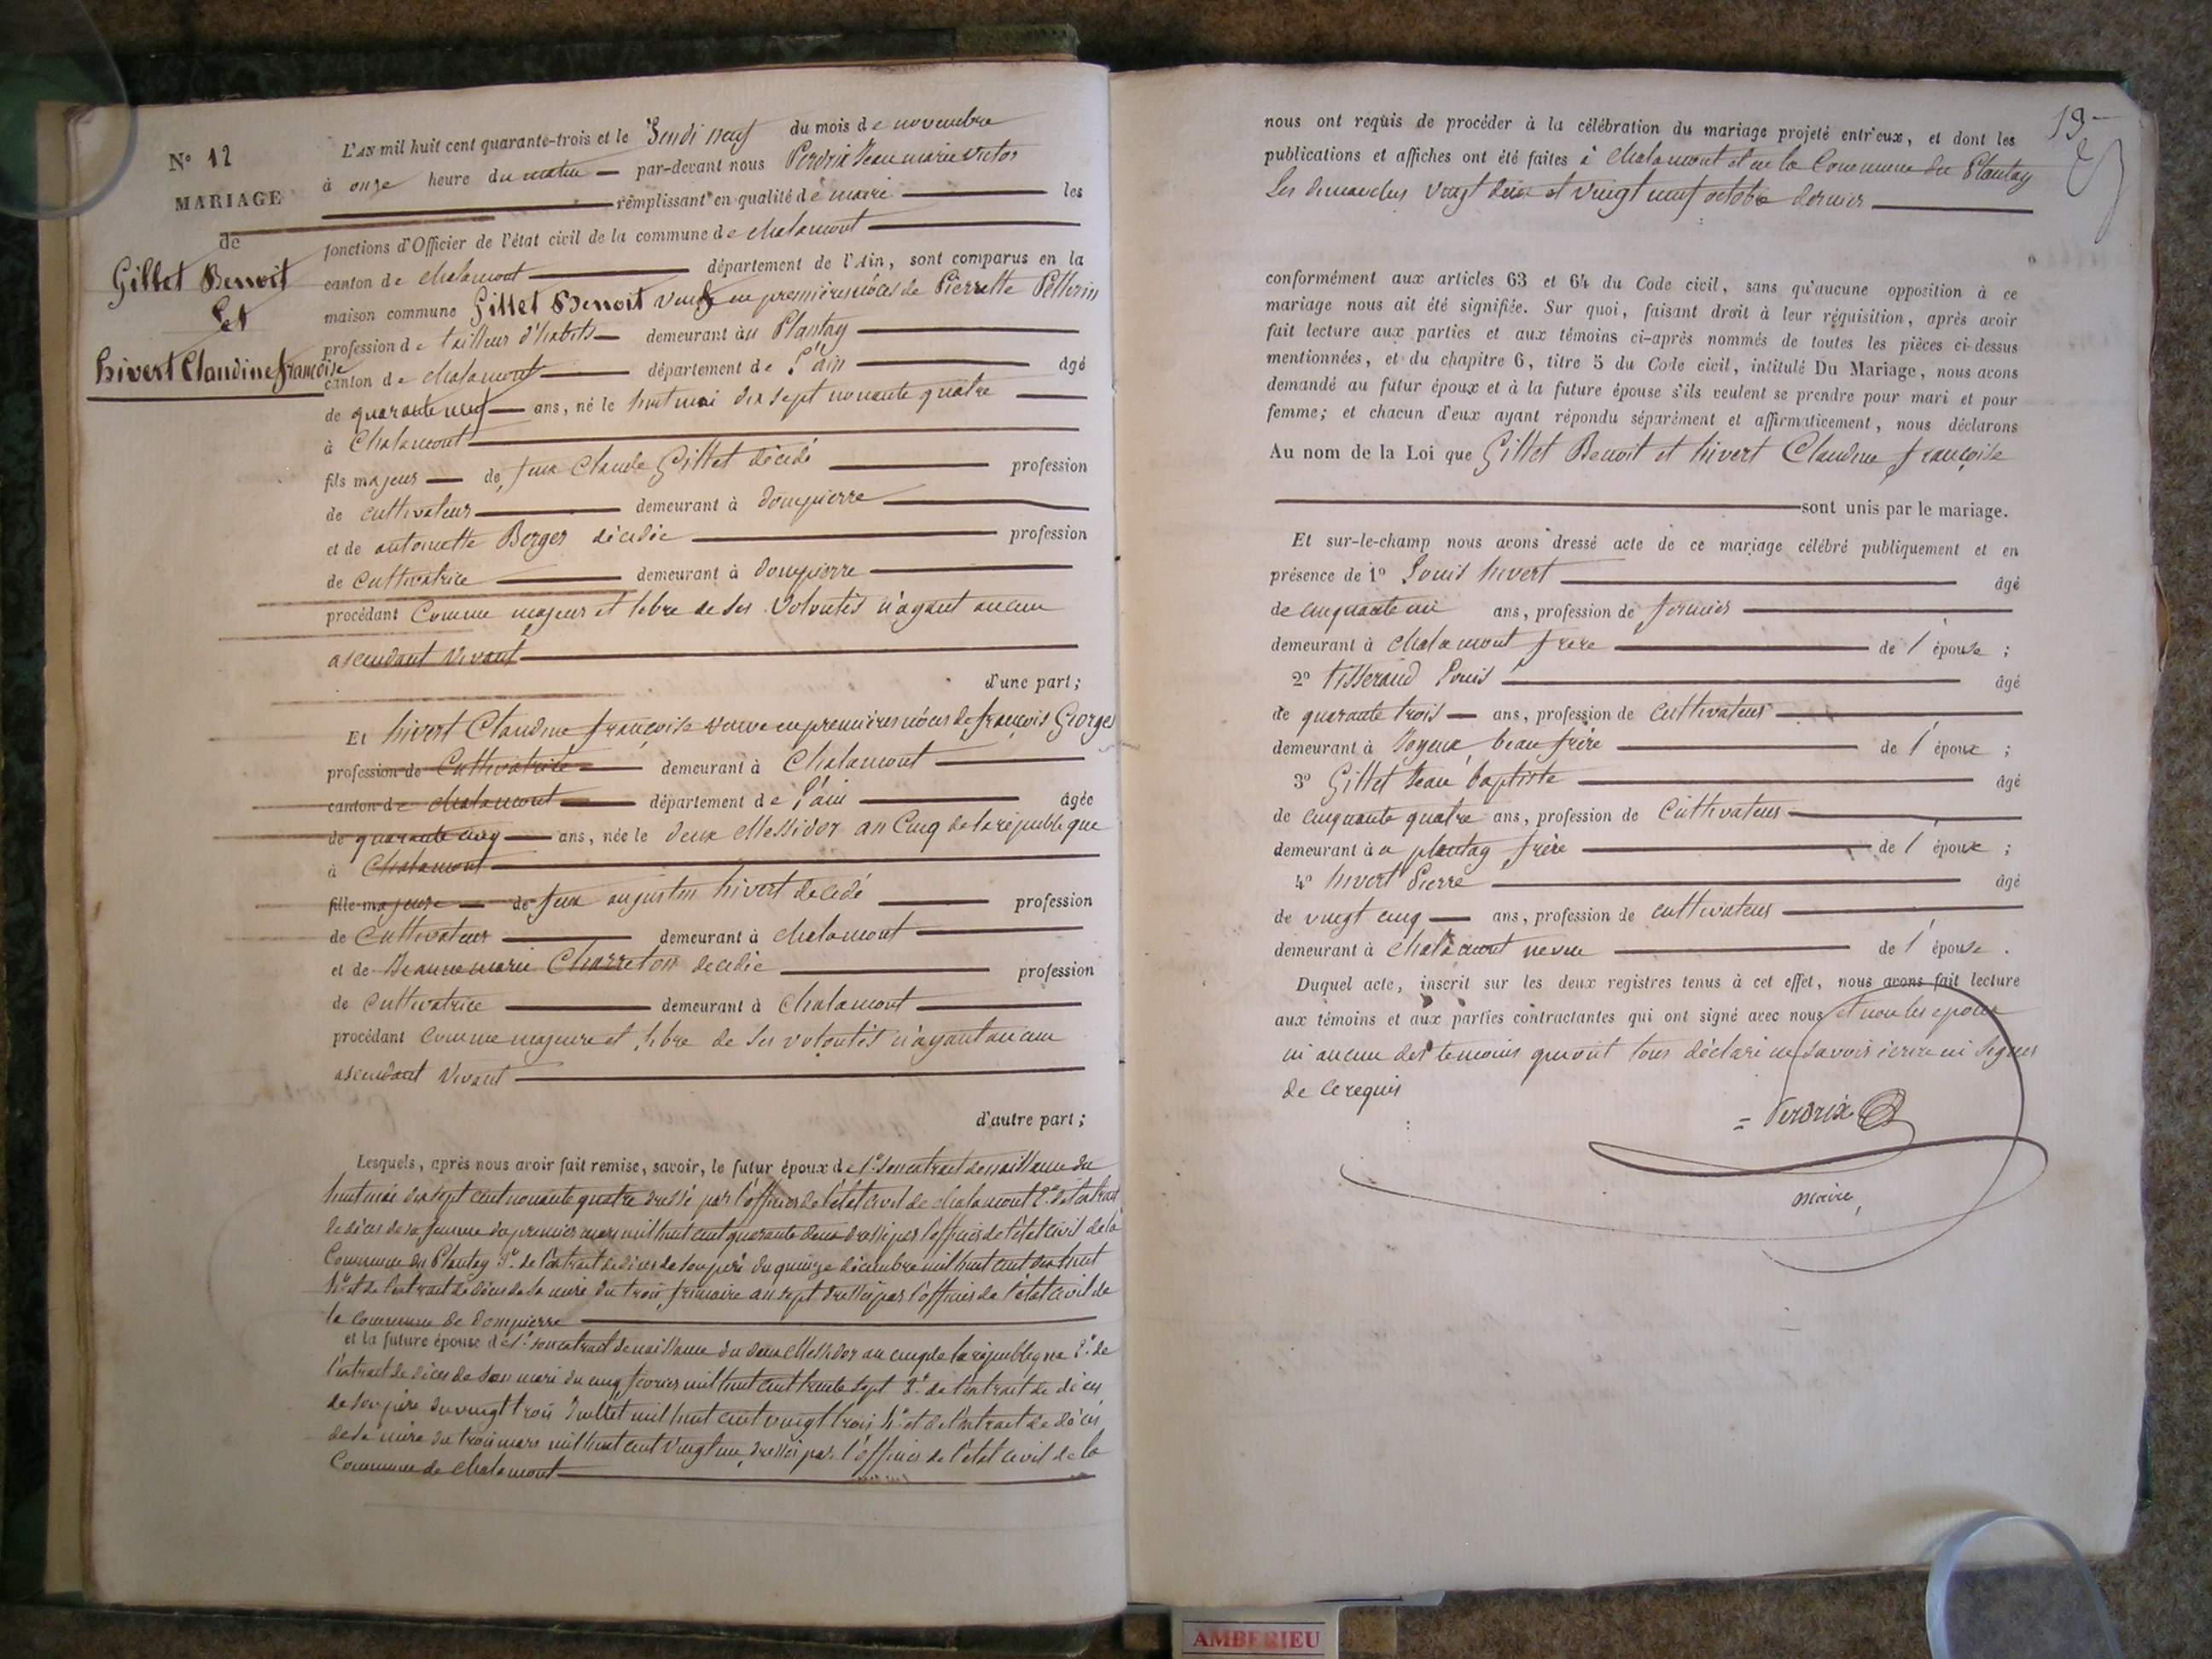 N° 12
MARIAGE
de
Gillet Benoit
Et
hivert Claudine françoise
L'AN mil huit cent quarante-trois et le Jeudi neuf du mois de novembre
à onze heure du matin par-devant nous Perdrix Jean marie victor
remplissant en qualité de maire les
fonctions d'Officier de l'état civil de la commune de chalamont
canton de chalamont département de l'Ain, sont comparus en la
maison commune Gillet Benoit veuf en premières nôces de Pierrette
profession de tailleur d'habits demeurant au Plantay
canton de chalamont département de l'ain âgé
de quarante neuf ans, né le huit mai dix sept nonante quatre
à Chalamont
fils majeur de feux Claude Gillet décédé profession
de cultivateur demeurant à dompierre
et de antoinette Berger décédée profession
de cultivatrice demeurant à dompierre
procédant Comme majeur et libre de ses volontés n'ayant aucun
ascendant vivant
d'une part;
Et hivert Claudine françoise veuve en premières nôces de françois Georges
profession de Cultivatrice demeurant à Chalamont
canton de chalamont département de l'ain âgée
de quarante cinq ans, née le deux Messidor an Cinq de la république
à Chalamont
fille majeure de feux augustin hivert decedé profession
de Cultivateur demeurant à chalamont
et de Jeanne marie Charreton decedée profession
de Cultivatrice demeurant à Chalamont
procédant comme majeure et libre de ses volontés n'ayant aucun
ascendant vivant
d'autre part;
Lesquels, après nous avoir fait remise, savoir, le futur époux de 1° son extrait de naissance du
huit mai dix sept cent nonante quatre dressé par l'officier de l'état civil de chalamont 2° de l'extrait
de déces de sa femme du premier mars mil huit cent quarante deux dressé par l'officier de l'état civil de la
Commune du Plantay 3° de l'extrait de déces de son père du quinze décembre mil huit cent dix huit
4° et de l'extrait de déces de sa mère du trois frimaire an sept dressés par l'officier de l'état civil de
la commune de Dompierre
et la future épouse de 1° son extrait de naissance du deux Messidor an cinq de la république 2° de
l'extrait de déces de son mari du cinq février mil huit cent trente sept 3° de l'extrait de déces
de son père du vingt trois Juillet mil huit cent vingt trois 4° et de l'extrait de déces
de sa mère du trois mars mil huit cent vingt un, dressés par l'officier de l'état civil de la
Commune de chalamont
19
nous ont requis de procéder à la célébration du mariage projeté entr'eux, et dont les
publications et affiches ont été faites à chalamont et en la Commune du Plantay
Les dimanches vingt deux et vingt neuf octobre dernier
conformément aux articles 63 et 64 du Code civil, sans qu'aucune opposition à ce
mariage nous ait été signifiée. Sur quoi, faisant droit à leur réquisition, après avoir
fait lecture aux parties et aux témoins ci-après nommés de toutes les pièces ci-dessus
mentionnées, et du chapitre 6, titre 5 du Code civil, intitulé Du Mariage, nous avons
demandé au futur époux et à la future épouse s'ils veulent se prendre pour mari et pour
femme; et chacun d'eux ayant répondu séparément et affirmativement, nous déclarons
Au nom de la Loi que Gillet Benoit et hivert Claudine françoise
sont unis par le mariage.
Et sur-le-champ nous avons dressé acte de ce mariage célébré publiquement et en
présence de 1° Louis hivert âgé
de cinquante un ans, profession de fermier
demeurant à chalamont frere de l'épouse;
2° tisserand Louis âgé
de quarante trois ans, profession de cultivateur
demeurant à Joyeux beau frère de l'époux;
3° Gillet Jean baptiste âgé
de cinquante quatre ans, profession de Cultivateur
demeurant au plantay frère de l'époux;
4° hivert Pierre âgé
de vingt cinq ans, profession de cultivateur
demeurant à chalamont neveu de l'épouse.
Duquel acte, inscrit sur les deux registres tenus à cet effet, nous avons fait lecture
aux témoins et aux parties contractantes qui ont signé avec nous et non les epoux
ni aucun des temoins qui ont tous déclaré ne savoir écrire ni signer
de ce requis
Perdrix
maire,
AMBERIEU